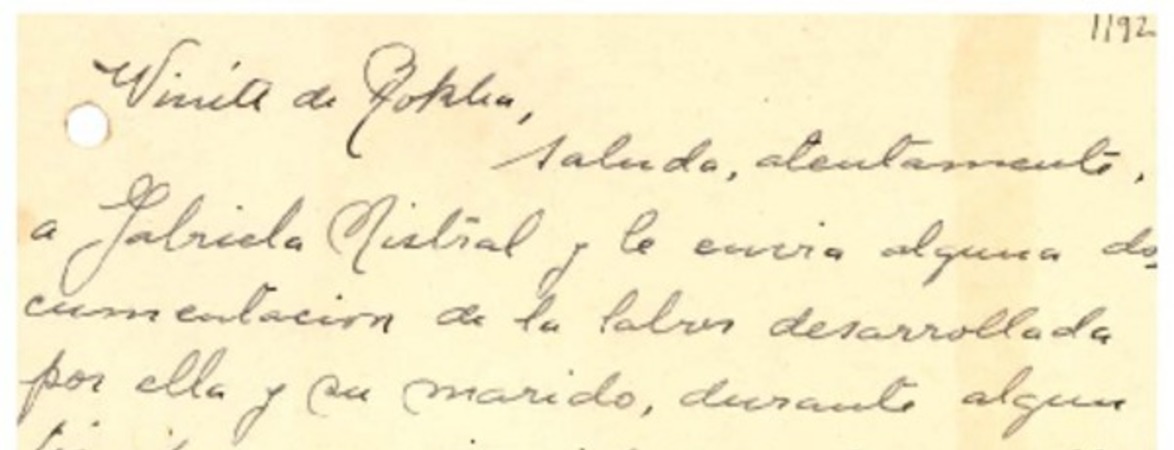 1192
Winétt de Rokha,
saluda, atentamente,
a Gabriela Mistral y le envia alguna do-
cumentacion de la labor desarrollada
por ella y su marido, durante algun